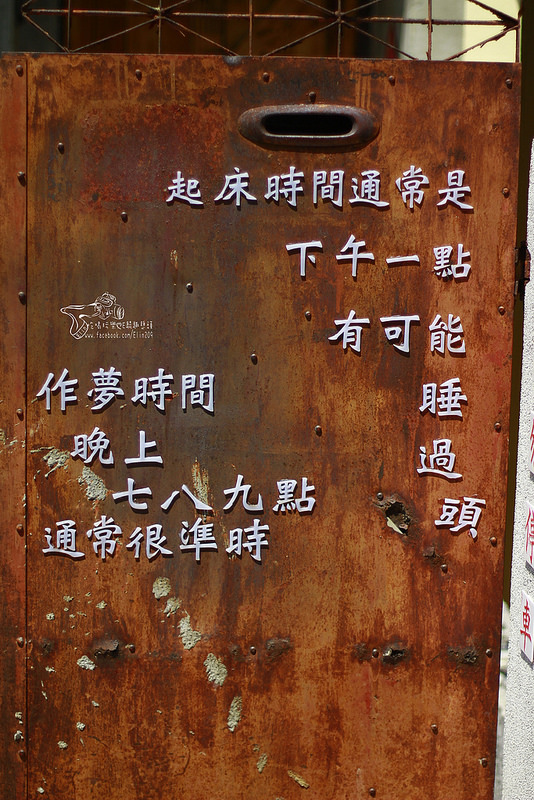 起床時間通常是
下午一點
有可能
睡
過
頭
作夢時間
晚上
七八九點
通常很準時
www.facebook.com/Elin204
停
車